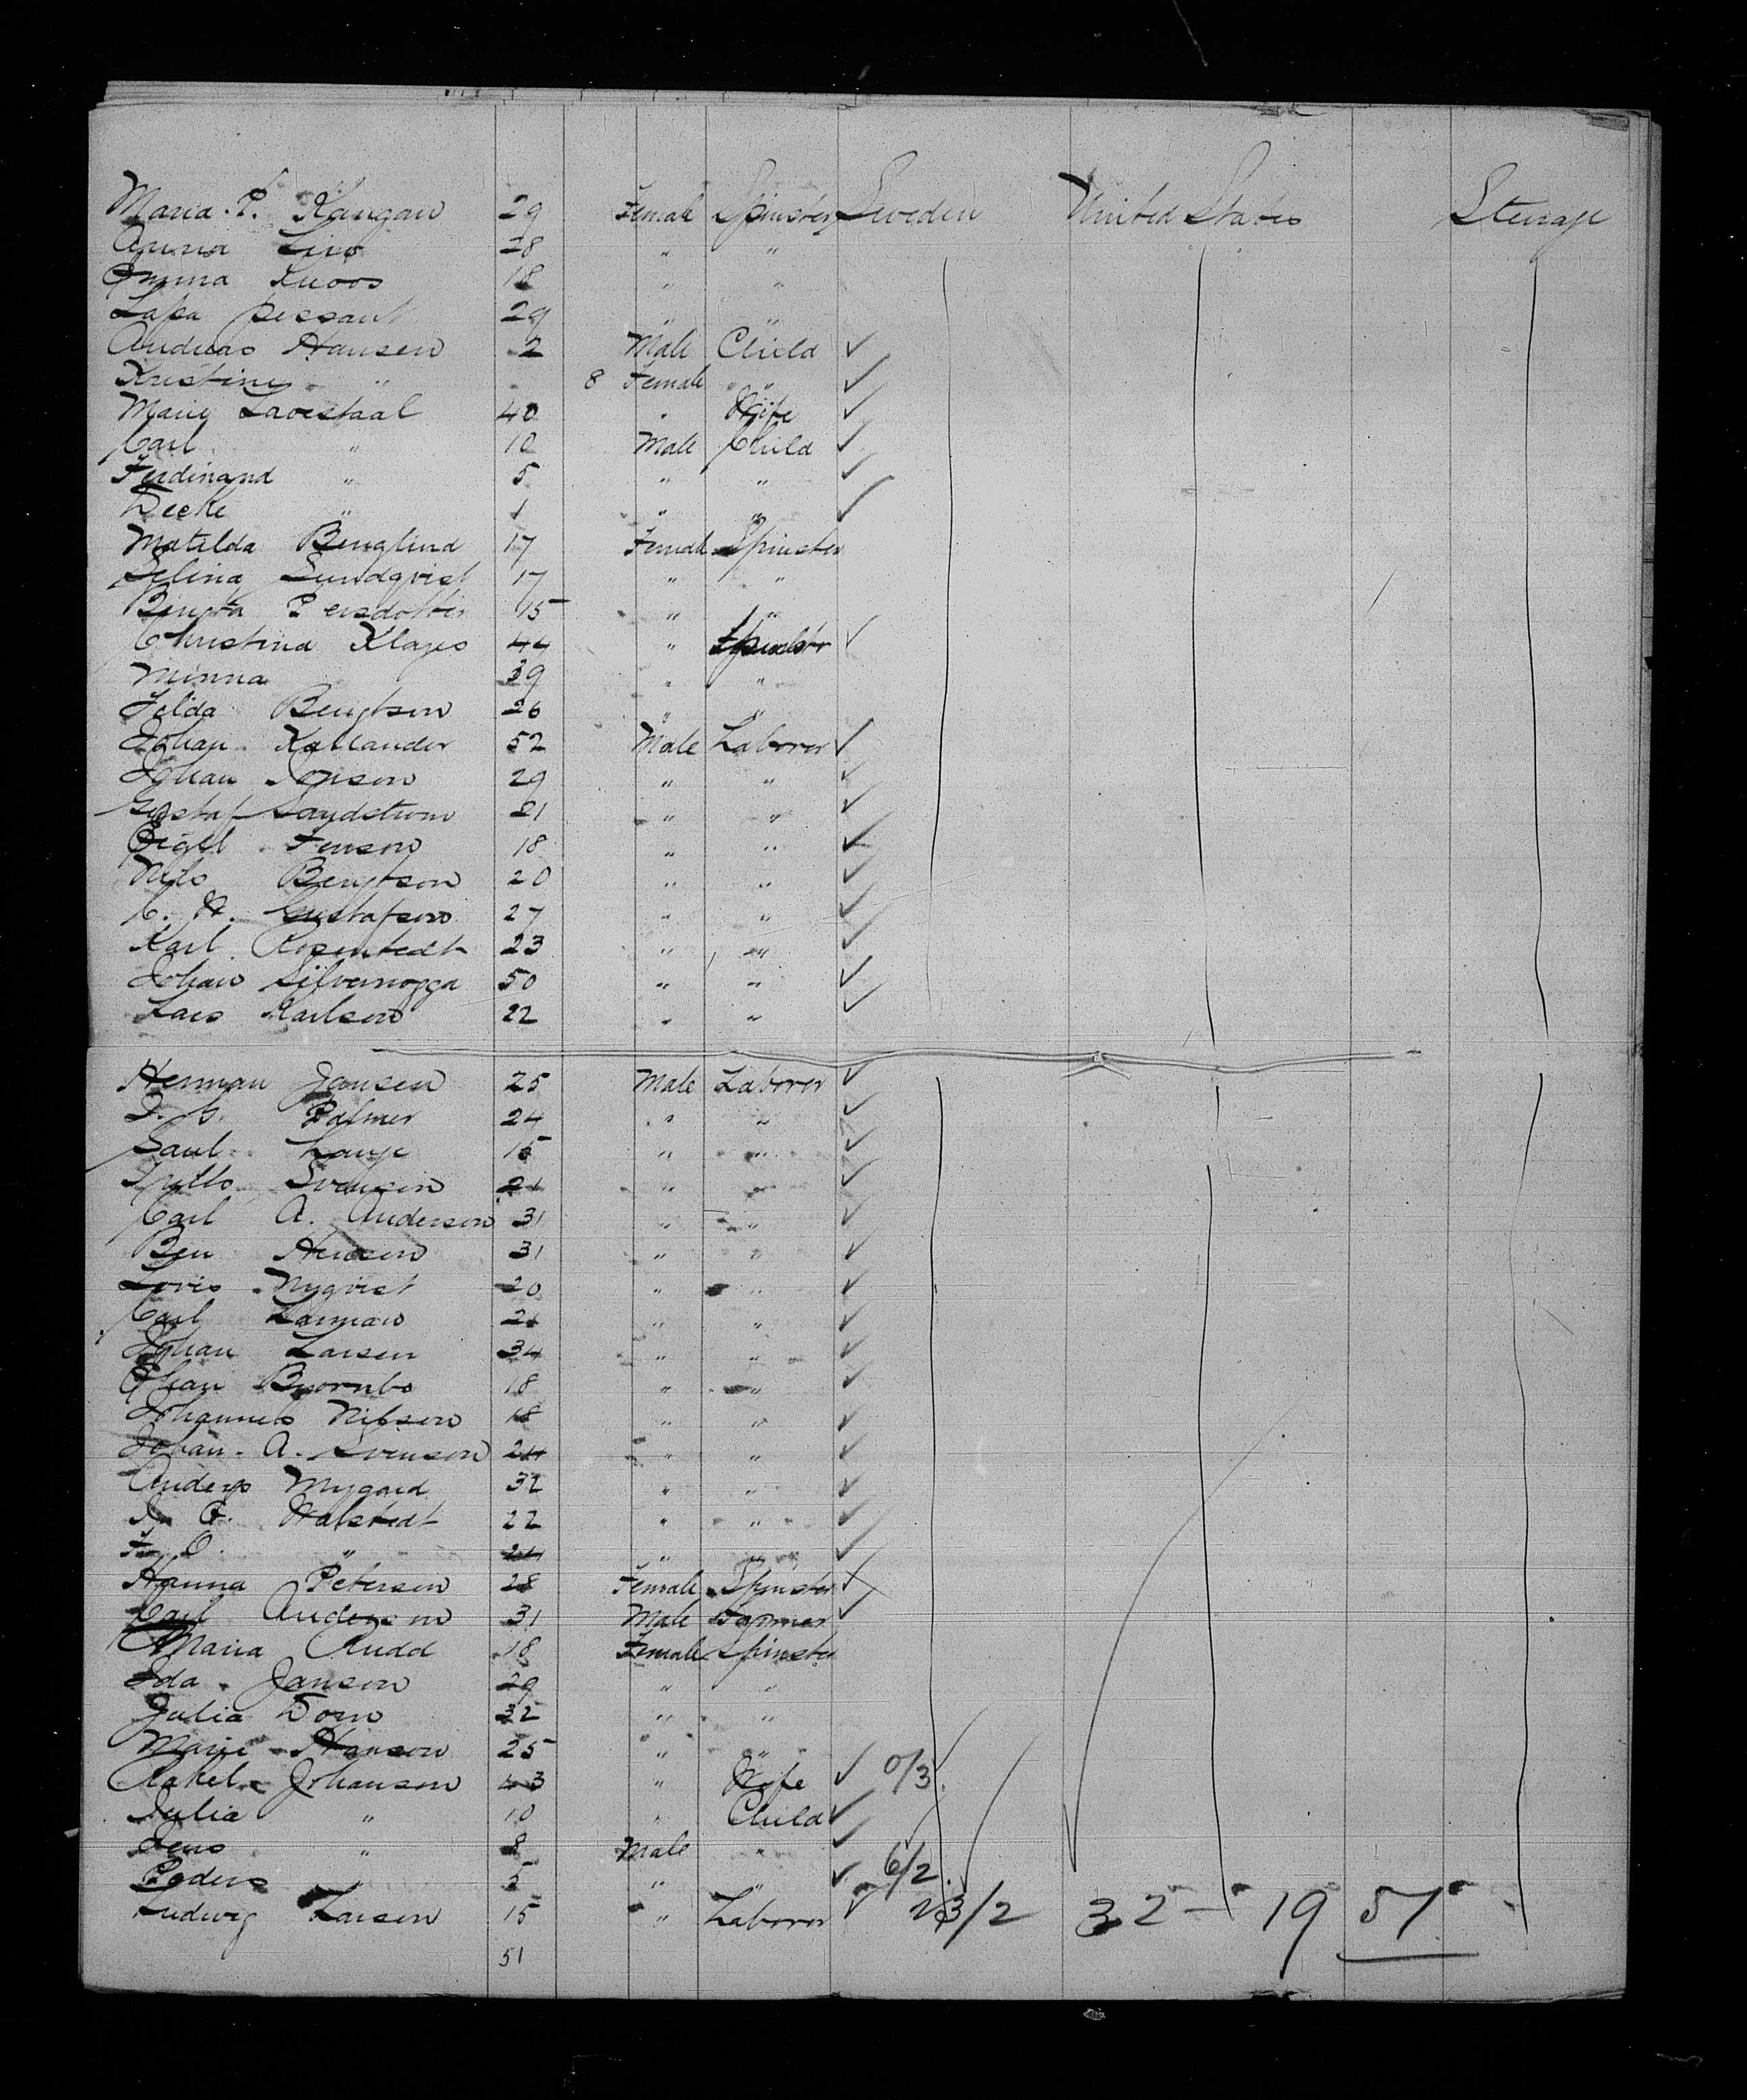 Maria P. Kangan 29 Female Spinster Sweden United States Steerage
Anna 28 " "
Emma Kuoos 18 " "
29 " "
Andreas Hansen 2 Male Child ✓
Kristine " 8 Female " ✓
Mary Lavestaal 40 " Wife ✓
Carl " 10 Male Child ✓
Ferdinand " 5 " " ✓
" 1 " " ✓
Matilda Benglind 17 Female Spinster
Selina Lundqvist 17 " "
Bengta Persdotter 15 " "
Christina Klages 44 " Spinster ✓
Minna 39 " "
Hilda Bengtson 26 " "
Johan Kallander 52 Male Laborer ✓
Johan Jonson 29 " " ✓
Gustaf Sandstrom 21 " " ✓
18 " " ✓
Nils Bengtson 20 " " ✓
C. A. Gustafson 27 " " ✓
Karl Rosentedt 23 " " ✓
Johan 50 " " ✓
Lars Karlson 22 " " ✓
Herman Jansen 25 Male Laborer ✓
Palmer 24 " " ✓
Paul Lange 15 " " ✓
Svenson 21 " " ✓
Carl A. Anderson 31 " " ✓
Ben Hanson 31 " " ✓
Lovis Nyqvist 20 " " ✓
Carl Larman 21 " " ✓
Johan Larsen 34 " " ✓
Bjornbo 18 " " ✓
Johannes Nilson 18 " " ✓
Johan A. Svenson 24 " " ✓
Anders Mygard 32 " " ✓
Walstedt 22 " " ✓
F. O. " 24 " " ✓
Hanna Peterson 28 Female Spinster ✓
Carl Anderson 31 Male Farmer ✓
Maria Rudd 18 Female Spinster
Ida Janson 29 " "
Julia Dorn 32 " "
Marie Hanson 25 " "
Rakel Johanson 43 " Wife ✓ 0/3
Julia " 10 " Child ✓
Jens " 8 Male " ✓
Peders " 5 " " ✓ 6/2
Ludwig Larsen 15 " Laborer ✓ 23/2 32 - 19 51
51